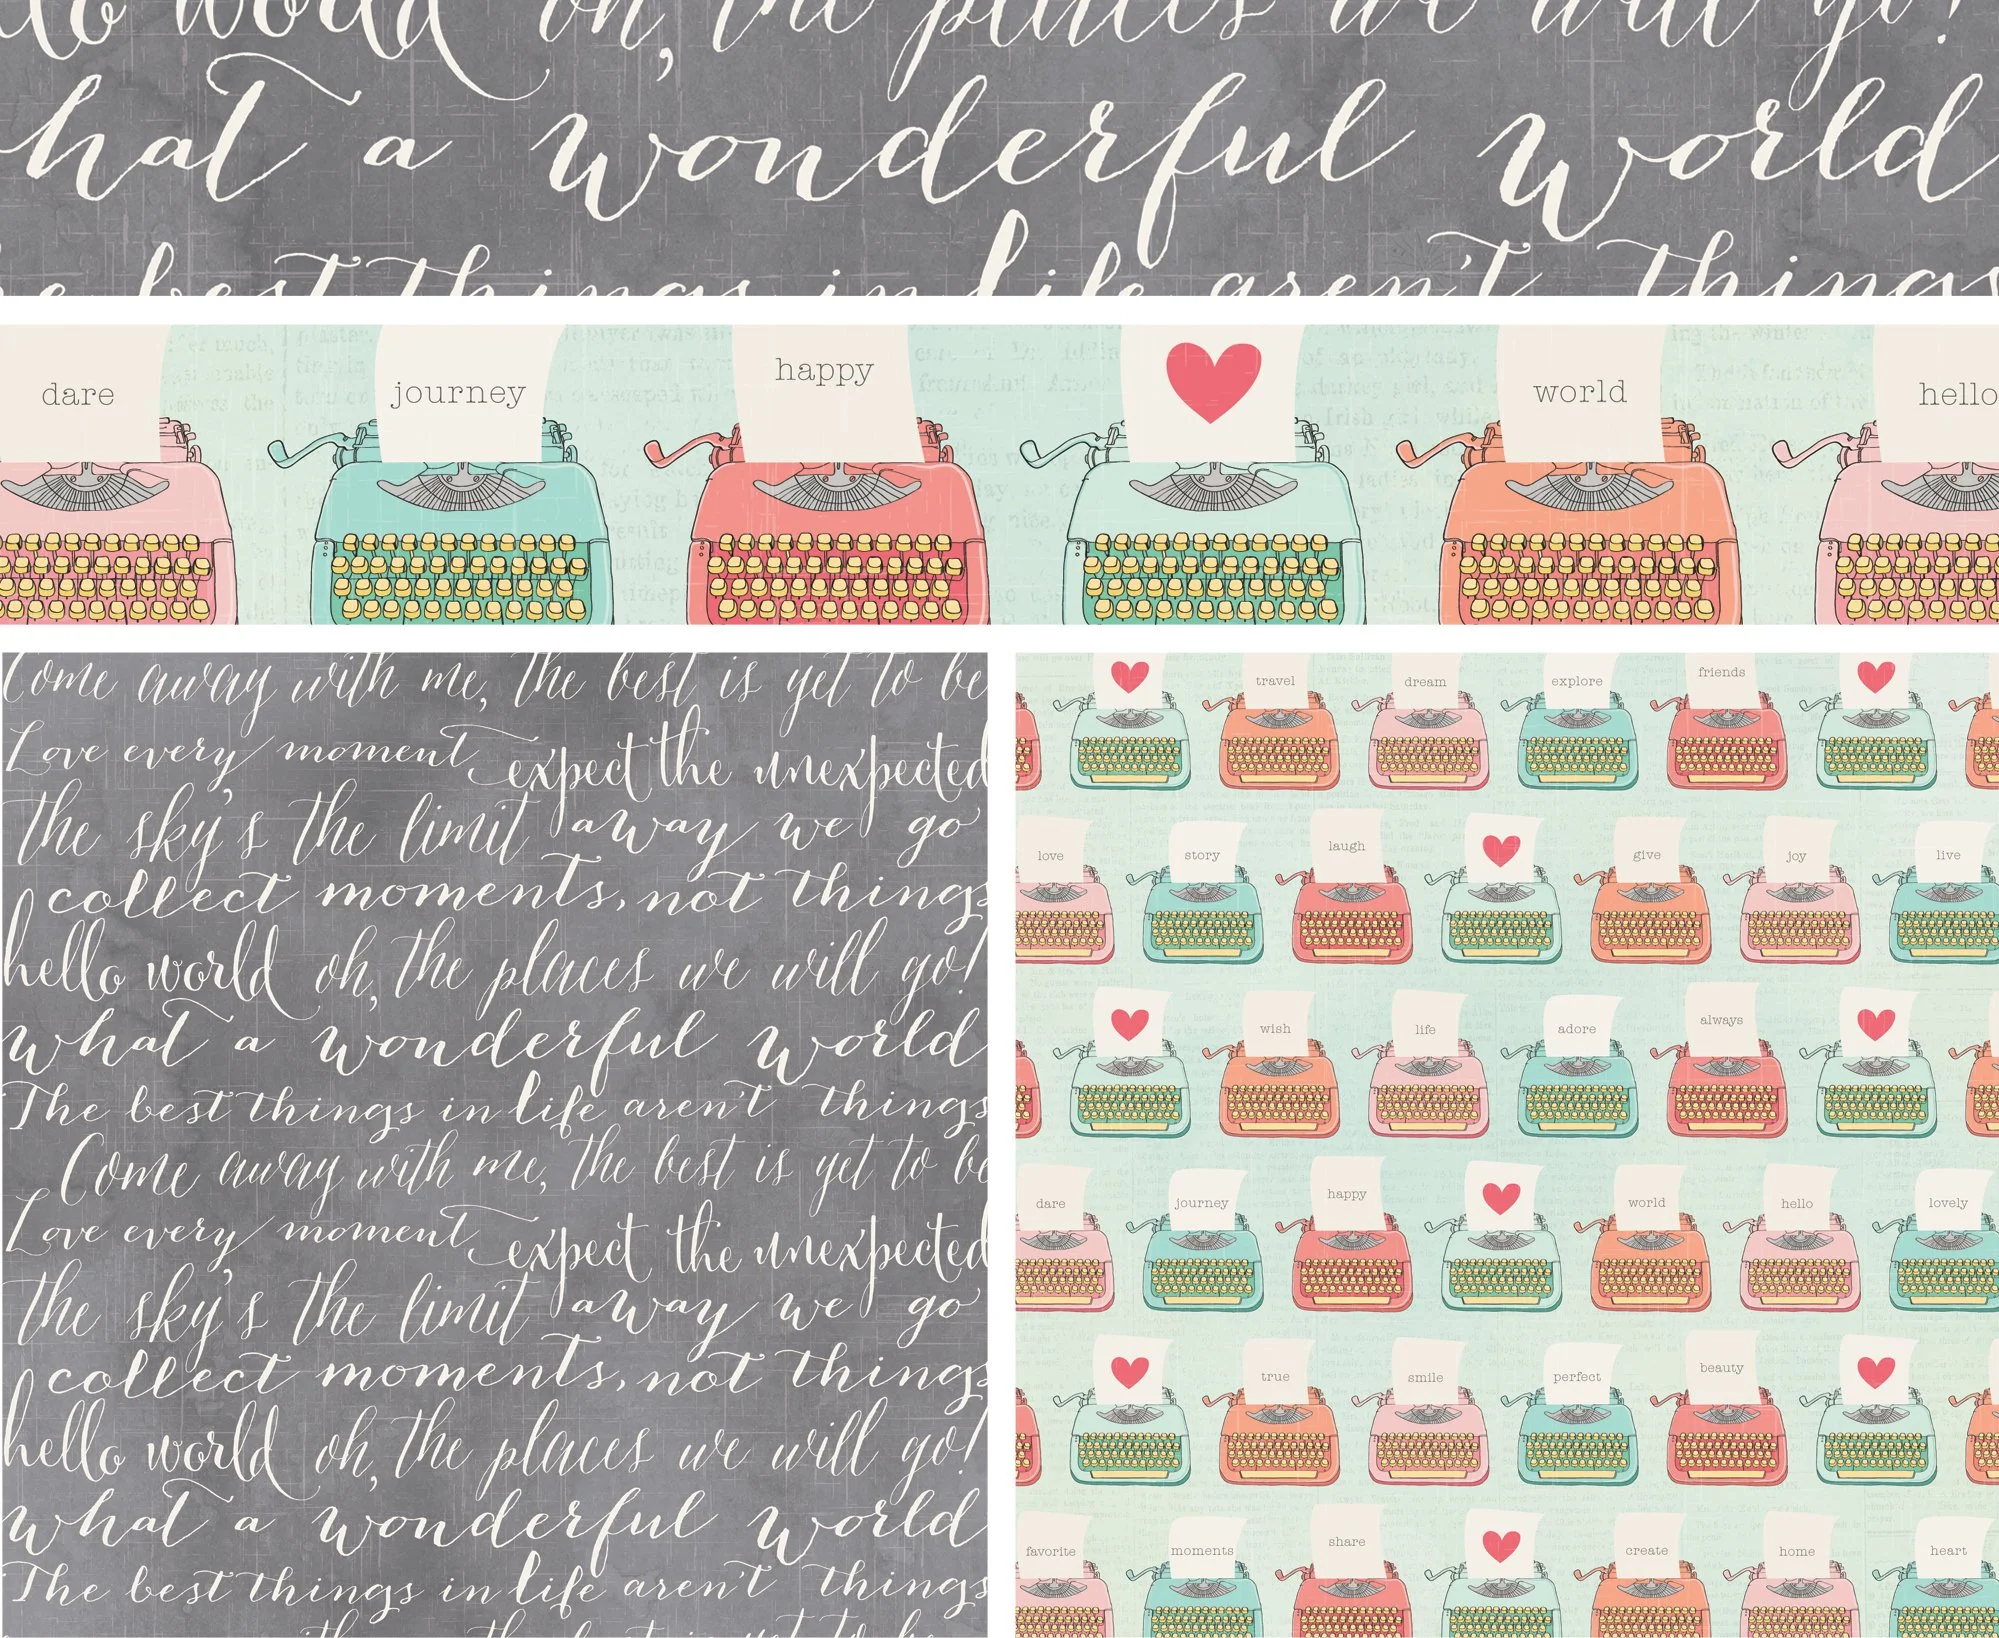 hello world oh, the places we will go!
what a wonderful world
the best things in life aren't things
dare journey happy world hello
Come away with me, the best is yet to be
Love every moment expect the unexpected
the sky's the limit away we go
collect moments, not things
hello world oh, the places we will go!
what a wonderful world
The best things in life aren't things
Come away with me, the best is yet to be
Love every moment expect the unexpected
the sky's the limit away we go
collect moments, not things
hello world oh, the places we will go!
what a wonderful world
The best things in life aren't things
travel dream explore friends
love story laugh give joy live
wish life adore always
dare journey happy world hello lovely
true smile perfect beauty
favorite moments share create home heart